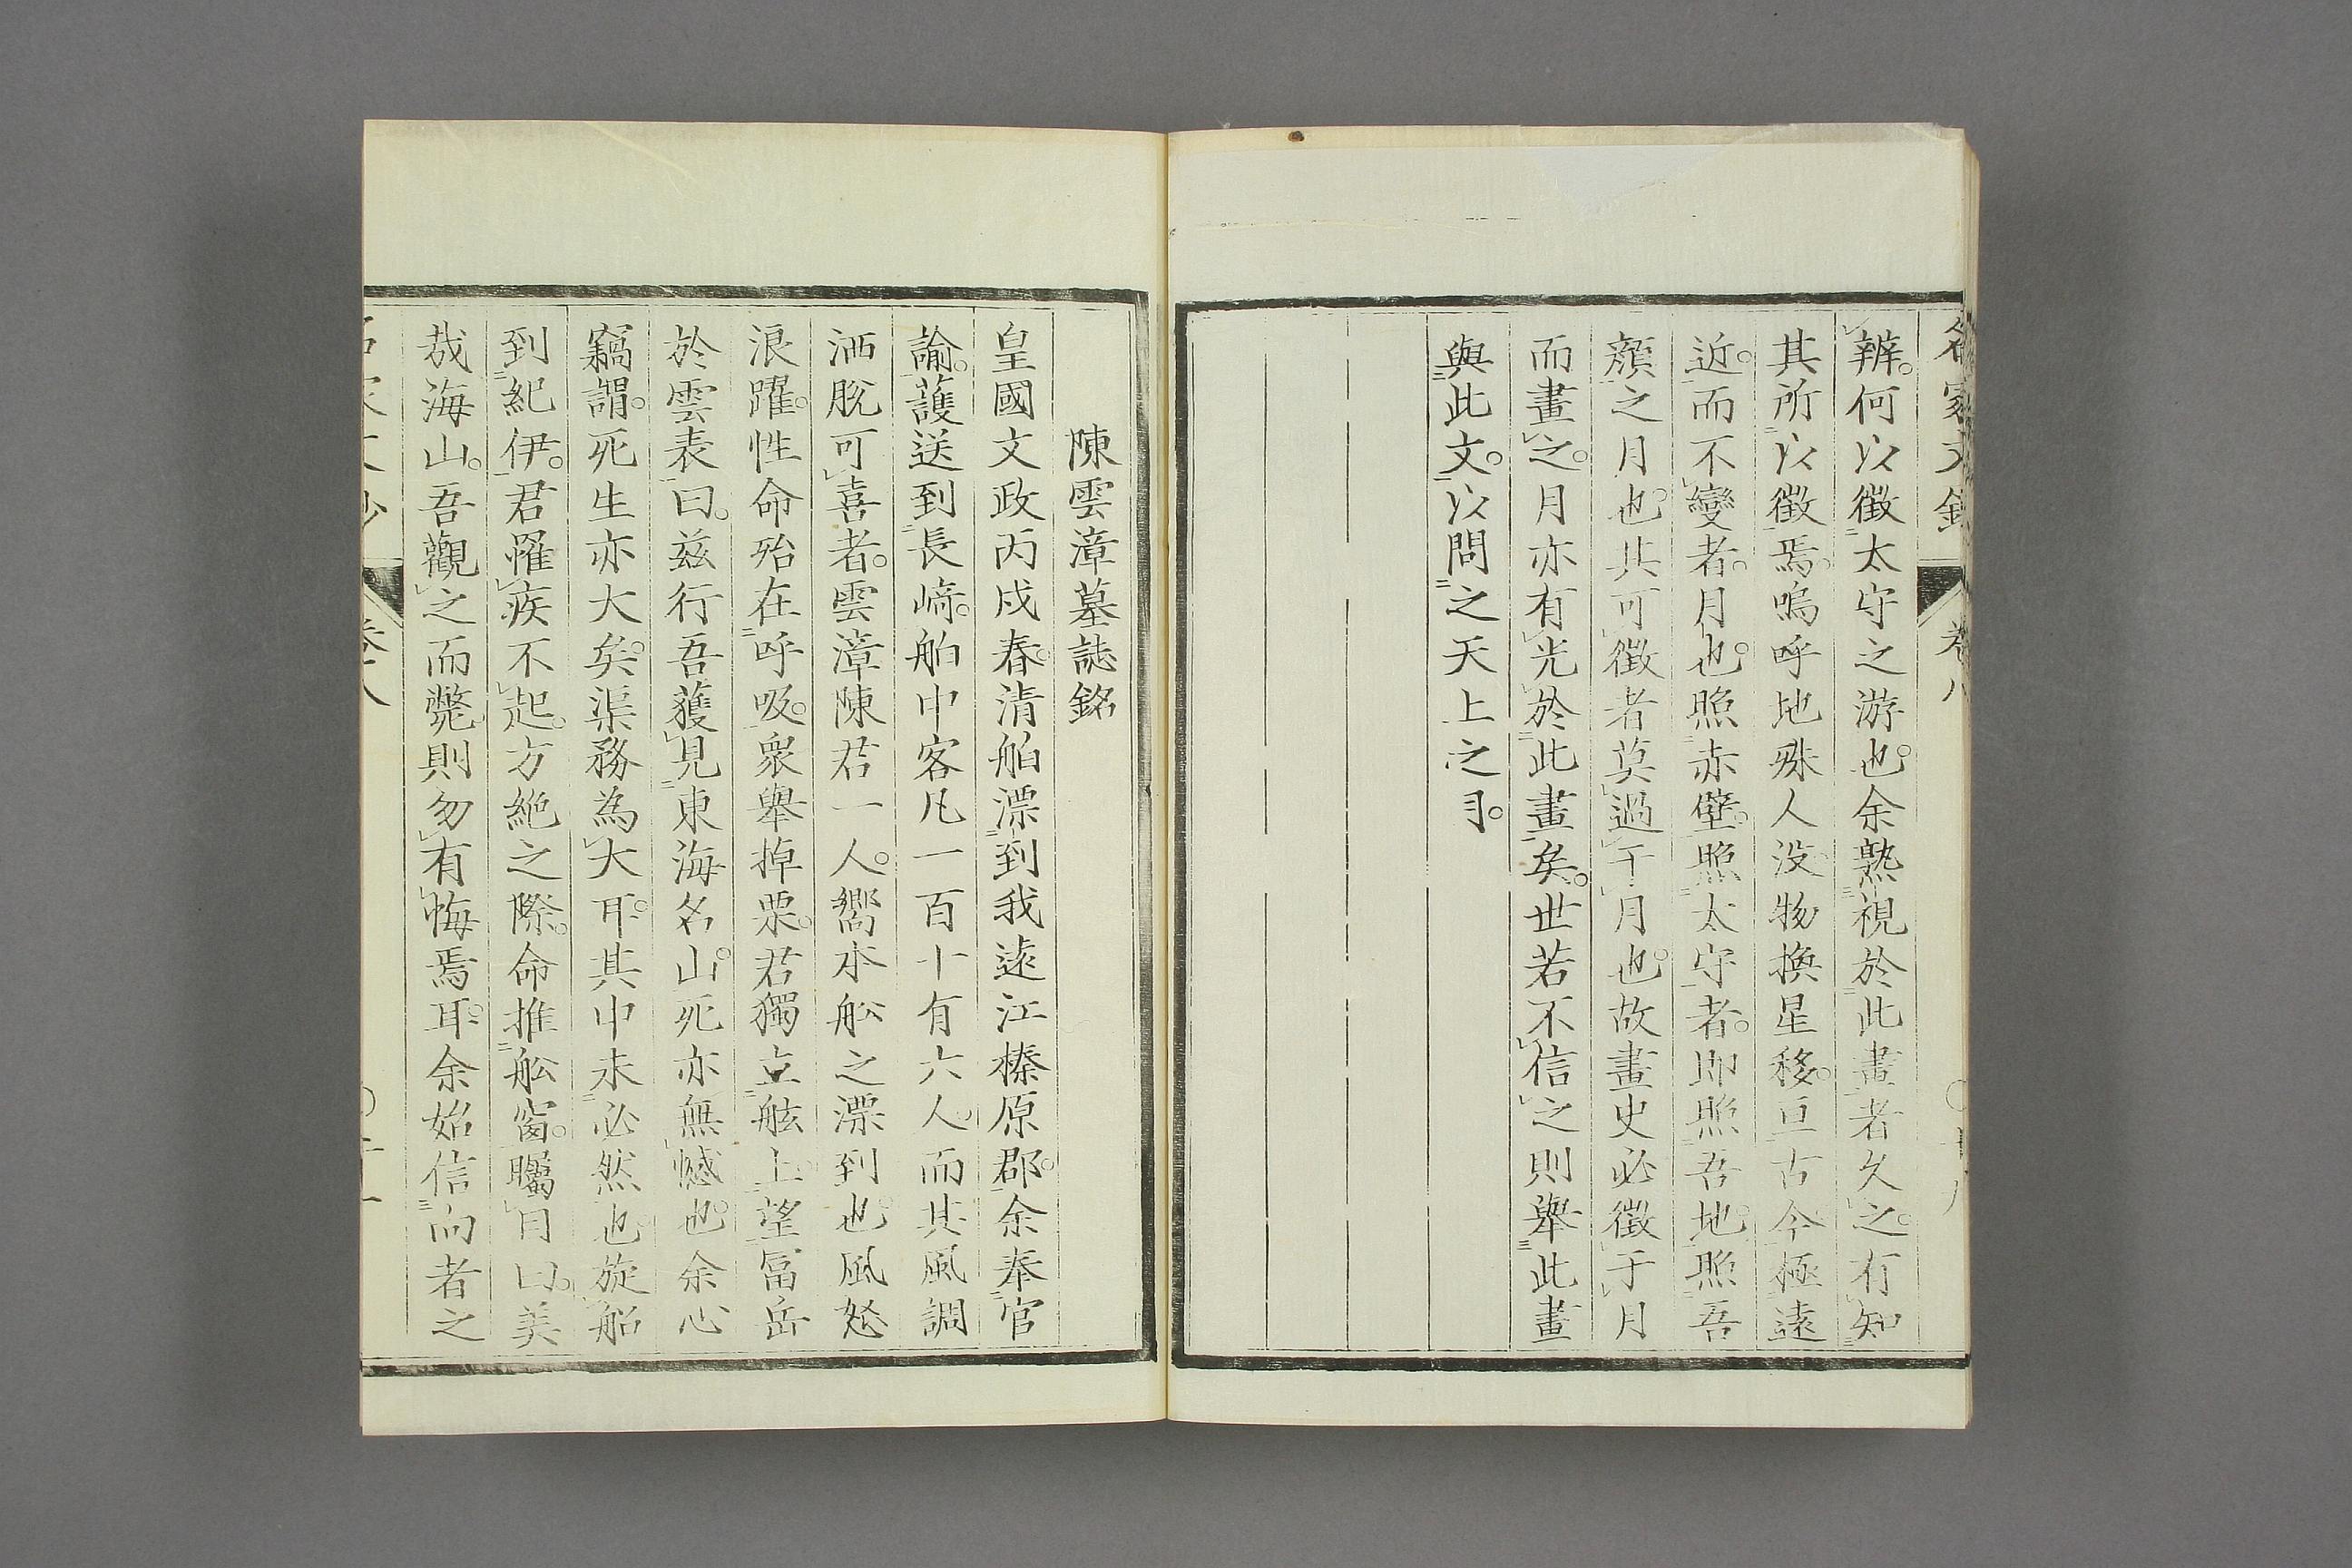 辨。何以徵太守之游也。余熟視於此畫者久之。有知
其所以徵焉。嗚呼地殊人没物換星移。亘古今極遠
近。而不變者。月也。照赤壁。照太守者。即照吾地。照吾
顏之月也。其可徵者莫過于月也。故畫史必徵于月
而畫之。月亦有光於此畫矣。世若不信之則舉此畫
與此文。以問之天上之月。
陳雲漳墓誌銘
皇國文政丙戌春。清舶漂到我遠江榛原郡。余奉官
諭。護送到長﨑。舶中客凡一百十有六人。而其風調
洒脫可喜者。雲漳陳君一人。嚮水舩之漂到也。風怒
浪躍。性命殆在呼吸。衆舉掉栗。君獨立舷上。望冨岳
於雲表曰。茲行吾獲見東海名山。死亦無憾也。余心
竊謂。死生亦大矣。渠務為大耳。其中未必然也。旋船
到紀伊。君罹疾不起。方絶之際。命推舩窗。矚目曰。美
哉海山。吾觀之而斃則勿有悔焉耳。余始信向者之